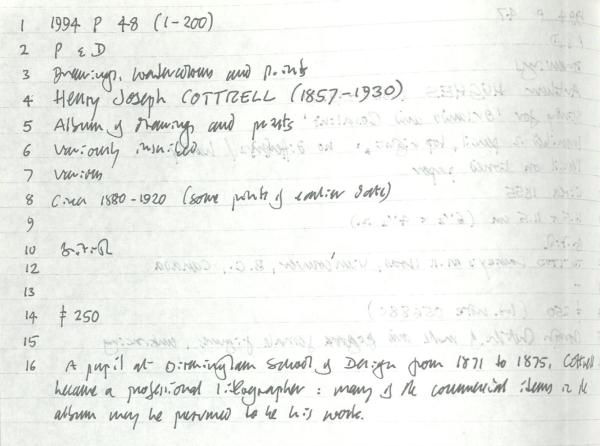 1 1994 P 48 (1-200)
2 P & D
3 Drawings, watercolours and prints
4 Henry Joseph COTTRELL (1857-1930)
5 Album of drawings and prints
6 Variously inscribed
7 Various
8 Circa 1880-1920 (some prints of earlier date)
9
10
12
13
14 £ 250
15
16 A pupil at Birmingham School of Design from 1871 to 1875, Cottrell
became a professional lithographer : many of the commercial items in the
album may be presumed to be his work.